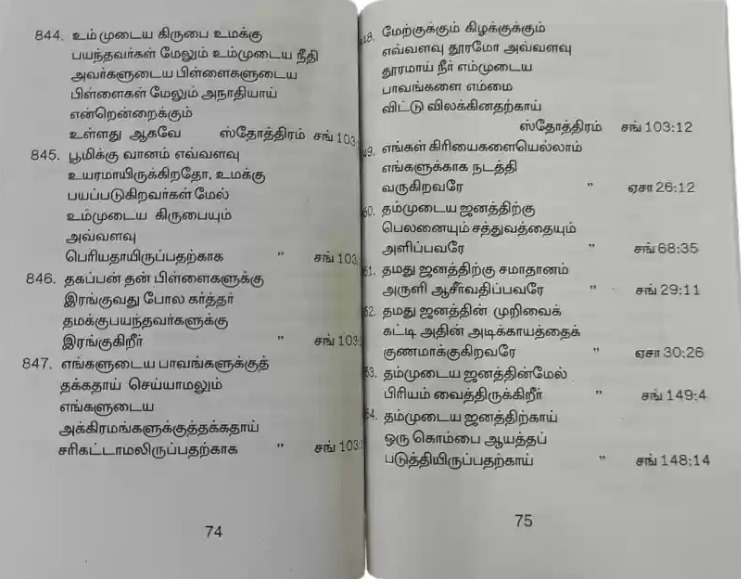 844. உம்முடைய கிருபை உமக்கு
பயந்தவர்கள் மேலும் உம்முடைய நீதி
அவர்களுடைய பிள்ளைகளுடைய
பிள்ளைகள் மேலும் அநாதியாய்
என்றென்றைக்கும்
உள்ளது ஆகவே ஸ்தோத்திரம் சங் 103:
845. பூமிக்கு வானம் எவ்வளவு
உயரமாயிருக்கிறதோ, உமக்கு
பயப்படுகிறவர்கள் மேல்
உம்முடைய கிருபையும்
அவ்வளவு
பெரியதாயிருப்பதற்காக " சங் 103
846. தகப்பன் தன் பிள்ளைகளுக்கு
இரங்குவது போல கர்த்தர்
தமக்குபயந்தவர்களுக்கு
இரங்குகிறீர் " சங் 103
847. எங்களுடைய பாவங்களுக்குத்
தக்கதாய் செய்யாமலும்
எங்களுடைய
அக்கிரமங்களுக்குத்தக்கதாய்
சரிகட்டாமலிருப்பதற்காக " சங் 103
74
48. மேற்குக்கும் கிழக்குக்கும்
எவ்வளவு தூரமோ அவ்வளவு
தூரமாய் நீர் எம்முடைய
பாவங்களை எம்மை
விட்டு விலக்கினதற்காய்
ஸ்தோத்திரம் சங் 103:12
49. எங்கள் கிரியைகளையெல்லாம்
எங்களுக்காக நடத்தி
வருகிறவரே " ஏசா 26:12
50. தம்முடைய ஜனத்திற்கு
பெலனையும் சத்துவத்தையும்
அளிப்பவரே " சங் 68:35
51. தமது ஜனத்திற்கு சமாதானம்
அருளி ஆசீர்வதிப்பவரே " சங் 29:11
52. தமது ஜனத்தின் முறிவைக்
கட்டி அதின் அடிக்காயத்தைக்
குணமாக்குகிறவரே " ஏசா 30:26
53. தம்முடைய ஜனத்தின்மேல்
பிரியம் வைத்திருக்கிறீர் " சங் 149:4
54. தம்முடைய ஜனத்திற்காய்
ஒரு கொம்பை ஆயத்தப்
படுத்தியிருப்பதற்காய் " சங் 148:14
75